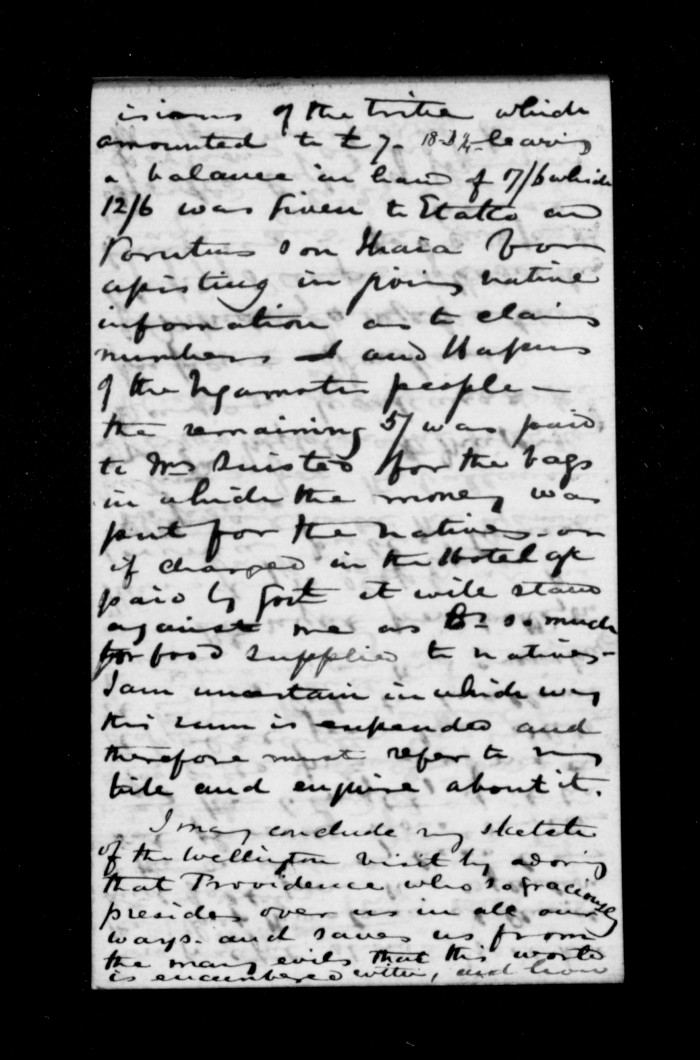 isions of the tribe which
amounted to £7. 18. leaving
a balance in hand of 17/6 which
12/6 was given to and
son Ihaia for
assisting in giving native
information as to claims
numbers and Hapus
of the people —
the remaining 5/ was paid
to Mrs for the bags
in which the money was
put for the natives - or
if charged in the Hotel a/c
paid by Govt it will stand
against me as so much
for food supplied to natives -
I am uncertain in which way
this sum is expended and
therefore must refer to my
bill and enquire about it.
I may conclude my sketch
of the Wellington visit by adoring
that Providence who so graciously
presides over us in all our
ways. and saves us from
the many evils that this world
is encumbered with, and how